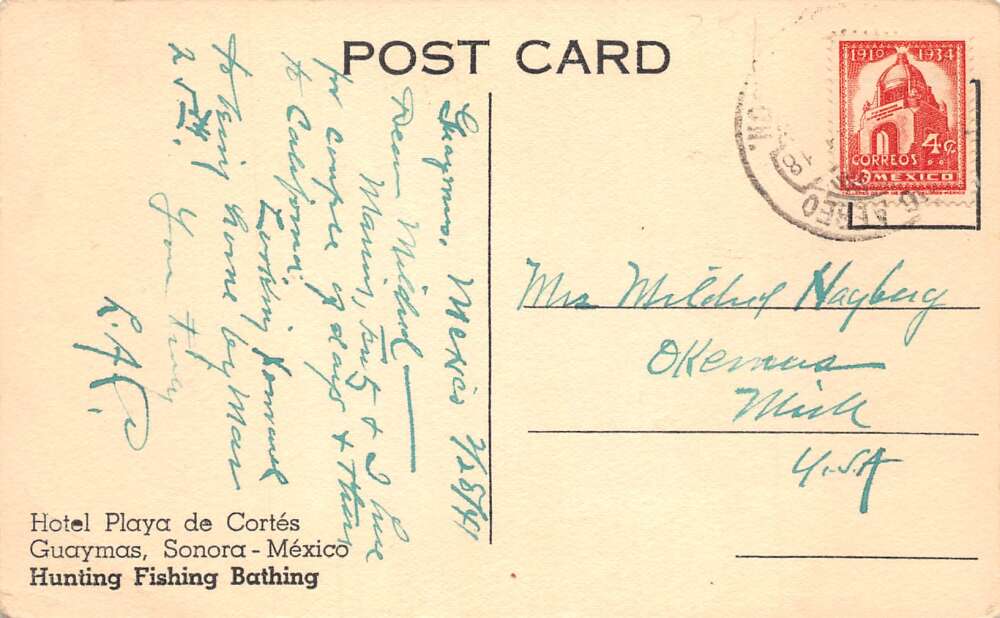 POST CARD
1910 1934
4 ¢
CORREOS
MEXICO
AEREO
18
Guaymas, Mexico
Dear Mildred
& I here
for couple of days & then
to California.
Looking forward
to being home by Mar
25th.
Yours truly
Mrs Mildred Hayberg
Okemus
Mich
U.S.A
Hotel Playa de Cortés
Guaymas, Sonora - México
Hunting Fishing Bathing